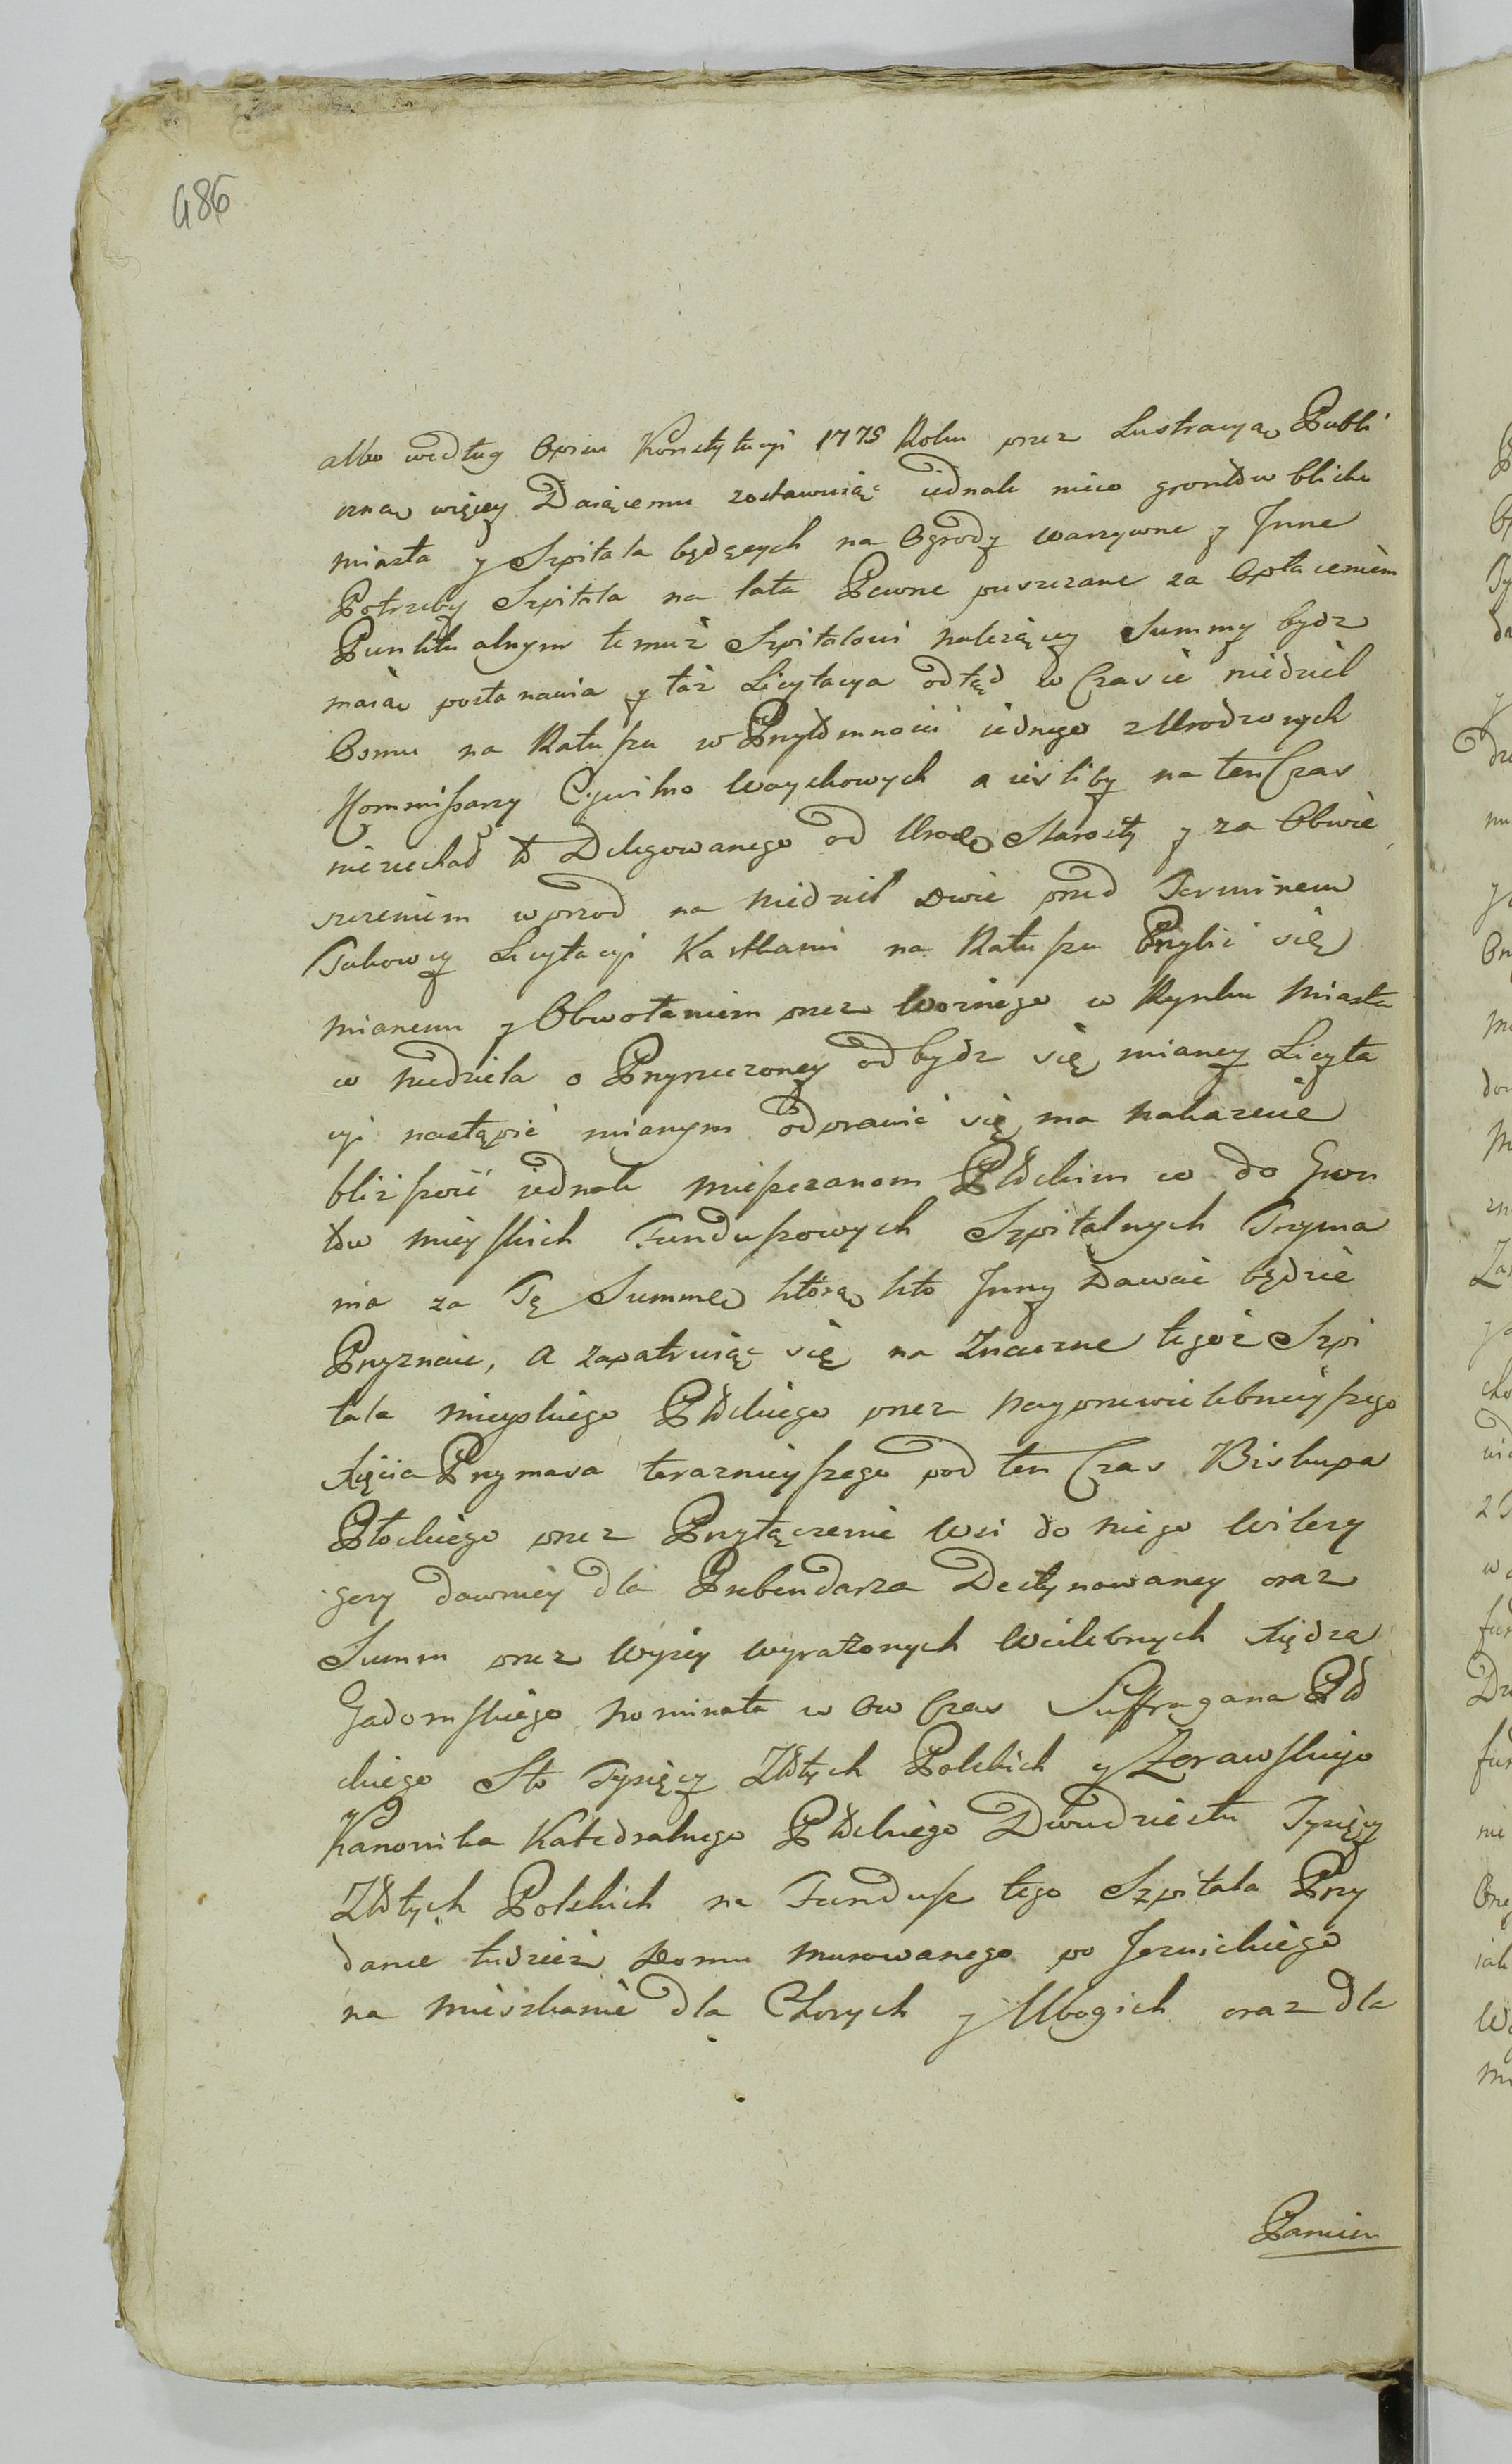 486
albo według Opisu Konstytucyi 1775 Roku przez Lustracyą Publi
czną więcey Daiącemu zostawuiąc iednak nieco grontów blisko
miasta y Szpitala będących na Ogrody warzywne y Inne
Potrzeby Szpitala na lata Pewne puszczane za Opłaceniem
Punktualnym temuż Szpitalowi należącey Summy bydz
maią postanawia y taż Licytacya odtąd w Czasie niedziel
Osmu na Ratuszu w Przytomności iednego z Urodzonych
Kommissarzy Cywilno Woyskowych a iesliby na ten Czas
nieziechał to Delegowanego od Urodo Starosty y za Obwie
szczeniem wprzod na Niedziel Dwie przed Terminem
Takowey Licytacyi Kartkami na Ratuszu Przybić się
mianemi y Obwołaniem przez Woźnego w Rynku Miasta
w niedziela o Przyrzeczoney odbydz się mianey Licyta
cyi nastąpić mianym odprawić się ma nakazuie
bliższość iednak mieszczanom Płockim w do Gron
tow mieyskich Funduszowych Szpitalnych Trzyma
nia za Tę Summę którą kto Inny Dawać będzie
Przyznaie, a zapatruiąc się na Znaczne tegoż Szpi
tala mieyskiego Płockiego przez nayprzewielebnieyszego
Xięcia Prymasa teraznieyszego pod ten Czas Biskupa
Płockiego przez Przyłączenie Wsi do niego Wilczy
gory dawniey dla Prebendarza Destynowaney oraz
Summ przez Wyżey wyrażonych Wielebnych Xiędza
Gadomskiego Nominata w Ow Czas Suffragana Pło
ckiego Sto Tysięcy Złotych Polskich y Zorawskiego
Kanonika Katedralnego Płockiego Dwudziestu Tysięcy
Złotych Polskich na Fundusz tego Szpitala Przy
danie tudzież Domu murowanego po Jezuickiego
na mieszkanie dla Chorych y Ubogich oraz dla
Pamien